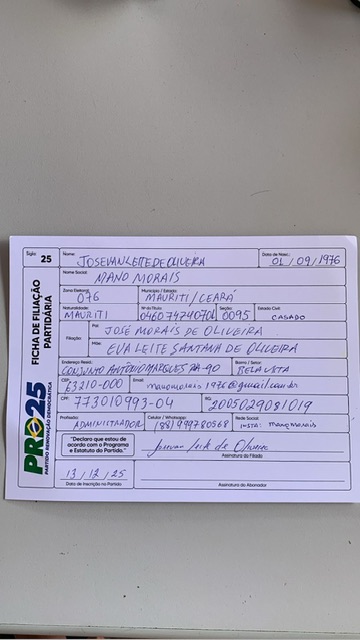 Sigla: 25
Nome: JOSEVAN LEITE DE OLIVEIRA
Data de Nasc.: 01/09/1976
Nome Social: MANO MORAIS
Zona Eleitoral: 076
Município / Estado: MAURITI / CEARÁ
Naturalidade: MAURITI
Nº do Título: 046074240701
Seção: 0095
Estado Civil: CASADO
Filiação
Pai: JOSÉ MORAIS DE OLIVEIRA
Mãe: EVA LEITE SANTANA DE OLIVEIRA
Endereço Resid.: CONJUNTO ANTÔNIO MARQUES
Bairro / Setor: BELA VISTA
CEP: 63210-000
Email:
CPF: 773010993-04
RG: 2005029081019
Profissão: ADMINISTRADOR
Celular / Whatsapp: (88) 999780568
Rede Social: INSTA: manomorais
"Declaro que estou de
acordo com o Programa
e Estatuto do Partido."
Josevan Leite de Oliveira
Assinatura do Filiado
13/12/25
Data de Inscrição no Partido
Assinatura do Abonador
FICHA DE FILIAÇÃO
PARTIDÁRIA
PRD25
PARTIDO RENOVAÇÃO DEMOCRÁTICA